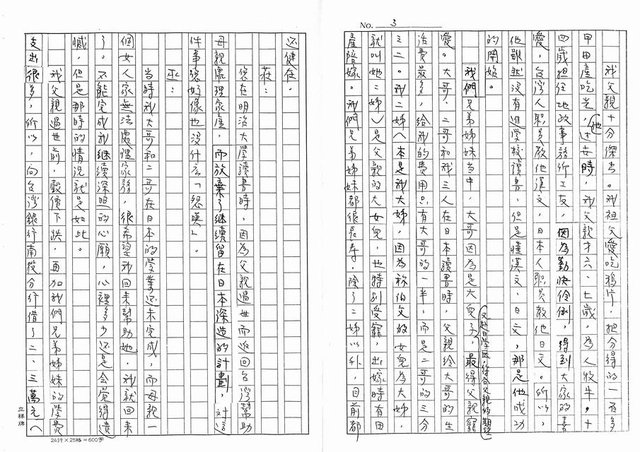 No. 3
我父親十分傑出。我祖父愛吃鴉片,把分得的一百多
甲田產吃光,他去世時,我父親才六、七歲,為人牧牛。十
四歲担任地政事務所工友,因為勤快伶俐,得到大家的喜
愛,台灣人職員教他漢文,日本人職員教他日文。所以,
他雖然沒有進學校讀書,但是懂漢文、日文,那是他成功
的開始。
我們兄弟姊妹當中,大哥因為是大兒子,最得父親寵
愛。大哥、二哥和我三人在日本讀書時,父親給大哥的生
活費最多,給我的費用只有大哥的一半,而是二哥的三分
之二。我二姊(本是我大姊,因為我伯父的女兒為大姊,
就叫她二姊)是父親的大女兒,也特別受寵,出嫁時有田
產陪嫁。我們兄弟姊妹都很長壽,除了二姊以外,目前都
還健在。
莊:
您在明治大學讀書時,因為父親過世而返回台灣幫助
母親處理家產,而放棄了繼續留在日本深造的計劃,對這
件事您好像也沒什麼「怨嘆」。
巫:
當時我大哥和二哥在日本的學業還未完成,而母親一
個女人家無法處理家務,很希望我回來幫助她,我就回來
了。不能完成我繼續深造的心願,心裡多少還是會覺得遺
憾,但是那時的情況就是如此。
我父親過世前,穀價下跌,再加我們兄弟姊妹的學費
支出很多,所以,向台灣銀行南投分行借了二、三萬元(
24×25=600字